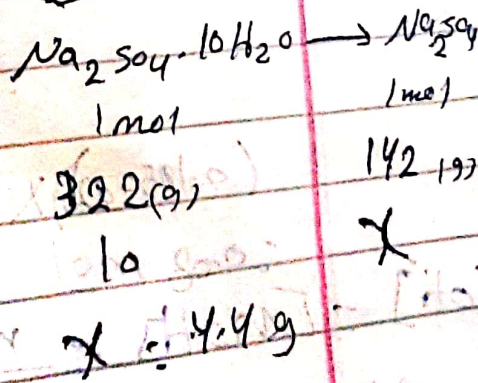 Na2SO4.10H2O → Na2SO4
1mol 1mol
322(g) 142(g)
10 X
X = 4.4g